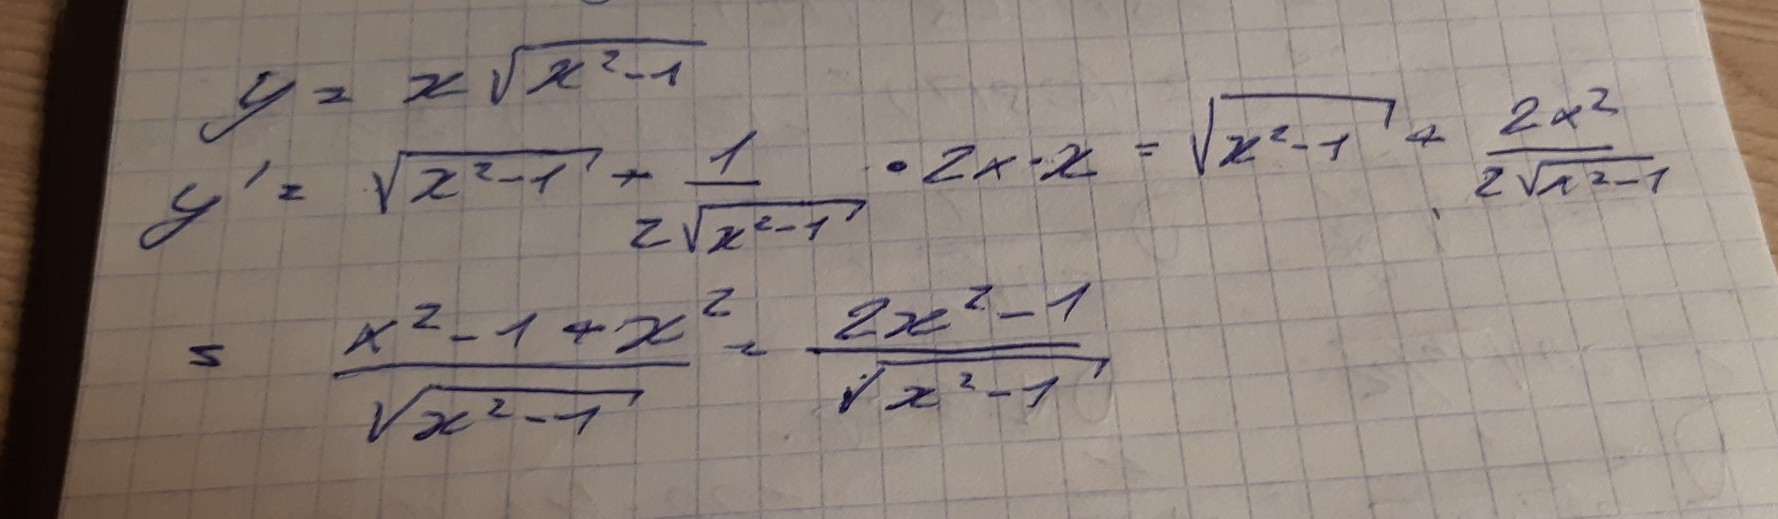 y = x √(x²-1)
y' = √(x²-1) + 1/(2√(x²-1)) • 2x · x = √(x²-1) + 2x²/(2√(x²-1))
= (x²-1+x²)/√(x²-1) = (2x²-1)/√(x²-1)